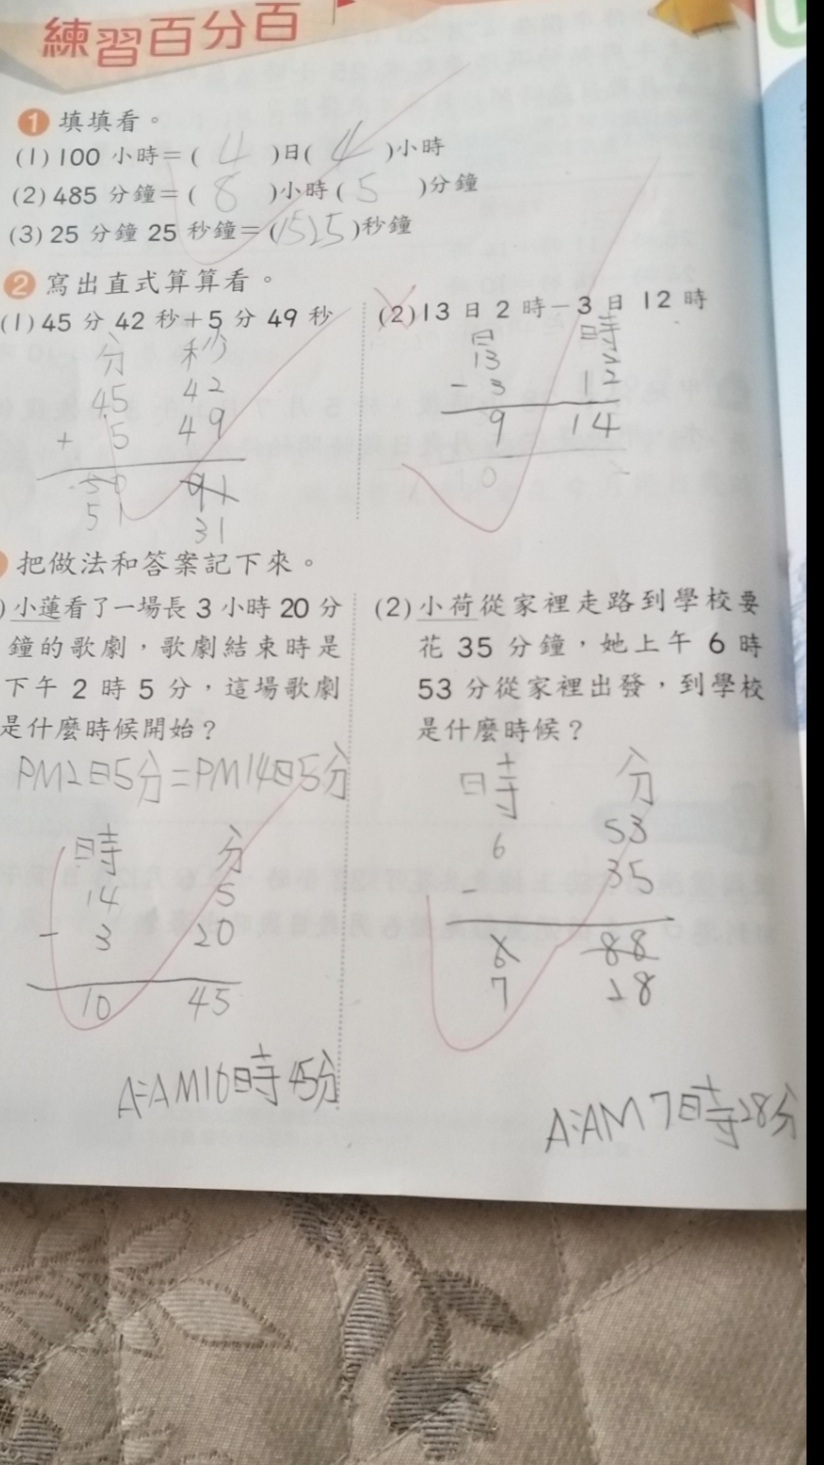 練習百分百
1 填填看。
(1) 100 小時=( 4 )日( 4 )小時
(2) 485 分鐘=( 8 )小時( 5 )分鐘
(3) 25 分鐘 25 秒鐘=(1525)秒鐘
2 寫出直式算算看。
(1) 45 分 42 秒+5 分 49 秒
分 秒
45 42
+ 5 49
50 91
51 31
(2) 13 日 2 時-3 日 12 時
日 時
13 2
- 3 12
9 14
10
把做法和答案記下來。
)小蓮看了一場長 3 小時 20 分
鐘的歌劇,歌劇結束時是
下午 2 時 5 分,這場歌劇
是什麼時候開始?
PM2日5分=PM14日5分
時 分
14 5
- 3 20
10 45
A:AM10時45分
(2) 小荷從家裡走路到學校要
花 35 分鐘,她上午 6 時
53 分從家裡出發,到學校
是什麼時候?
時 分
6 53
- 35
6 88
7 28
A:AM7時28分